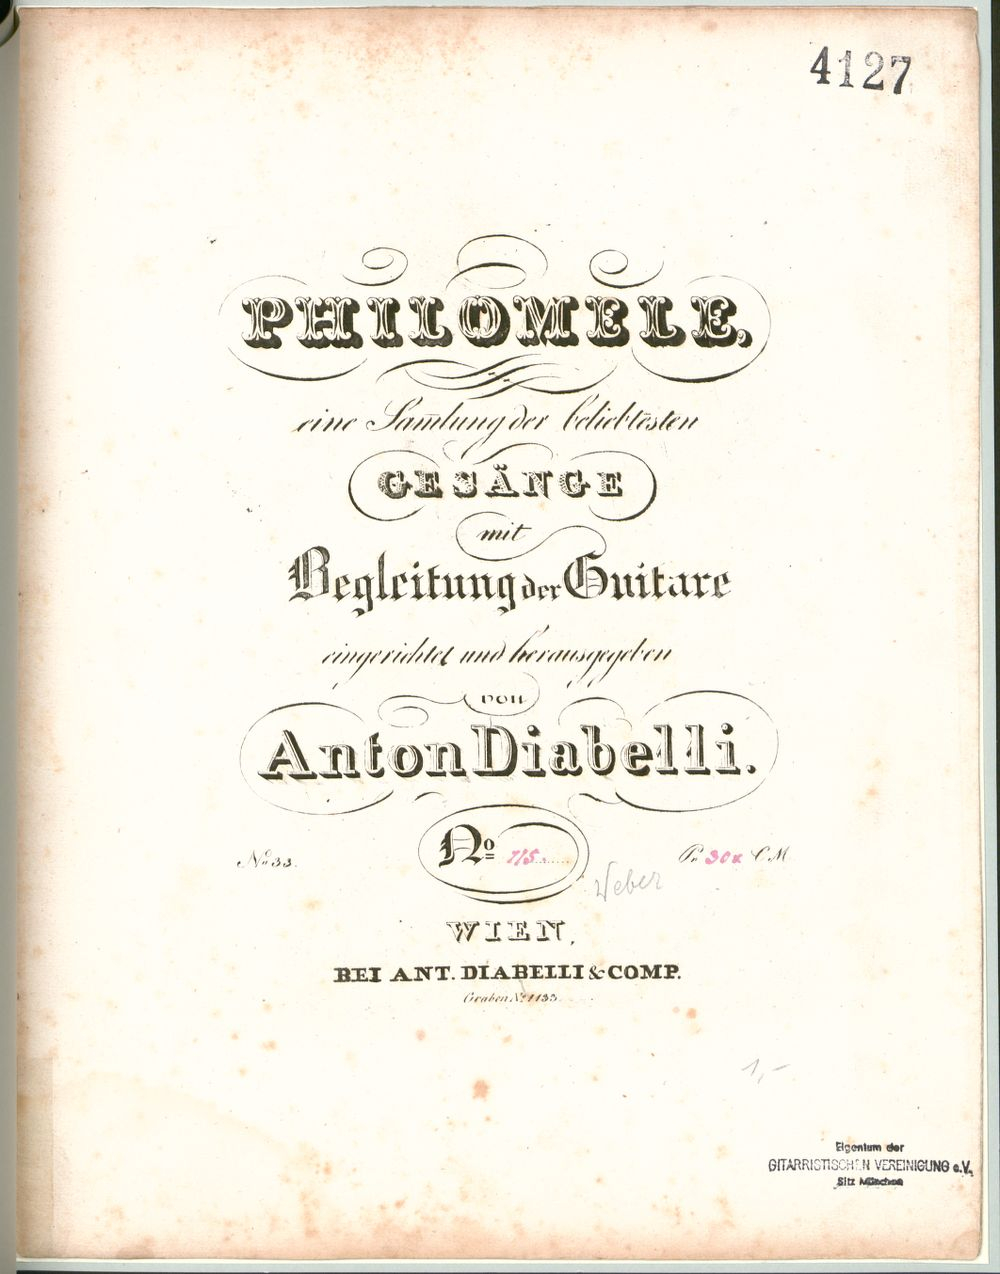 4127
PHILOMELE,
eine Sam̄lung der beliebtesten
GESÄNGE
mit
Begleitung der Guitare
eingerichtet und herausgegeben
von
Anton Diabelli.
No 33. No 115. Pr. 30x C M
Weber
WIEN,
BEI ANT. DIABELLI & COMP.
Graben No 1133.
1,-
Eigentum der
GITARRISTISCHEN VEREINIGUNG e.V.
Sitz München